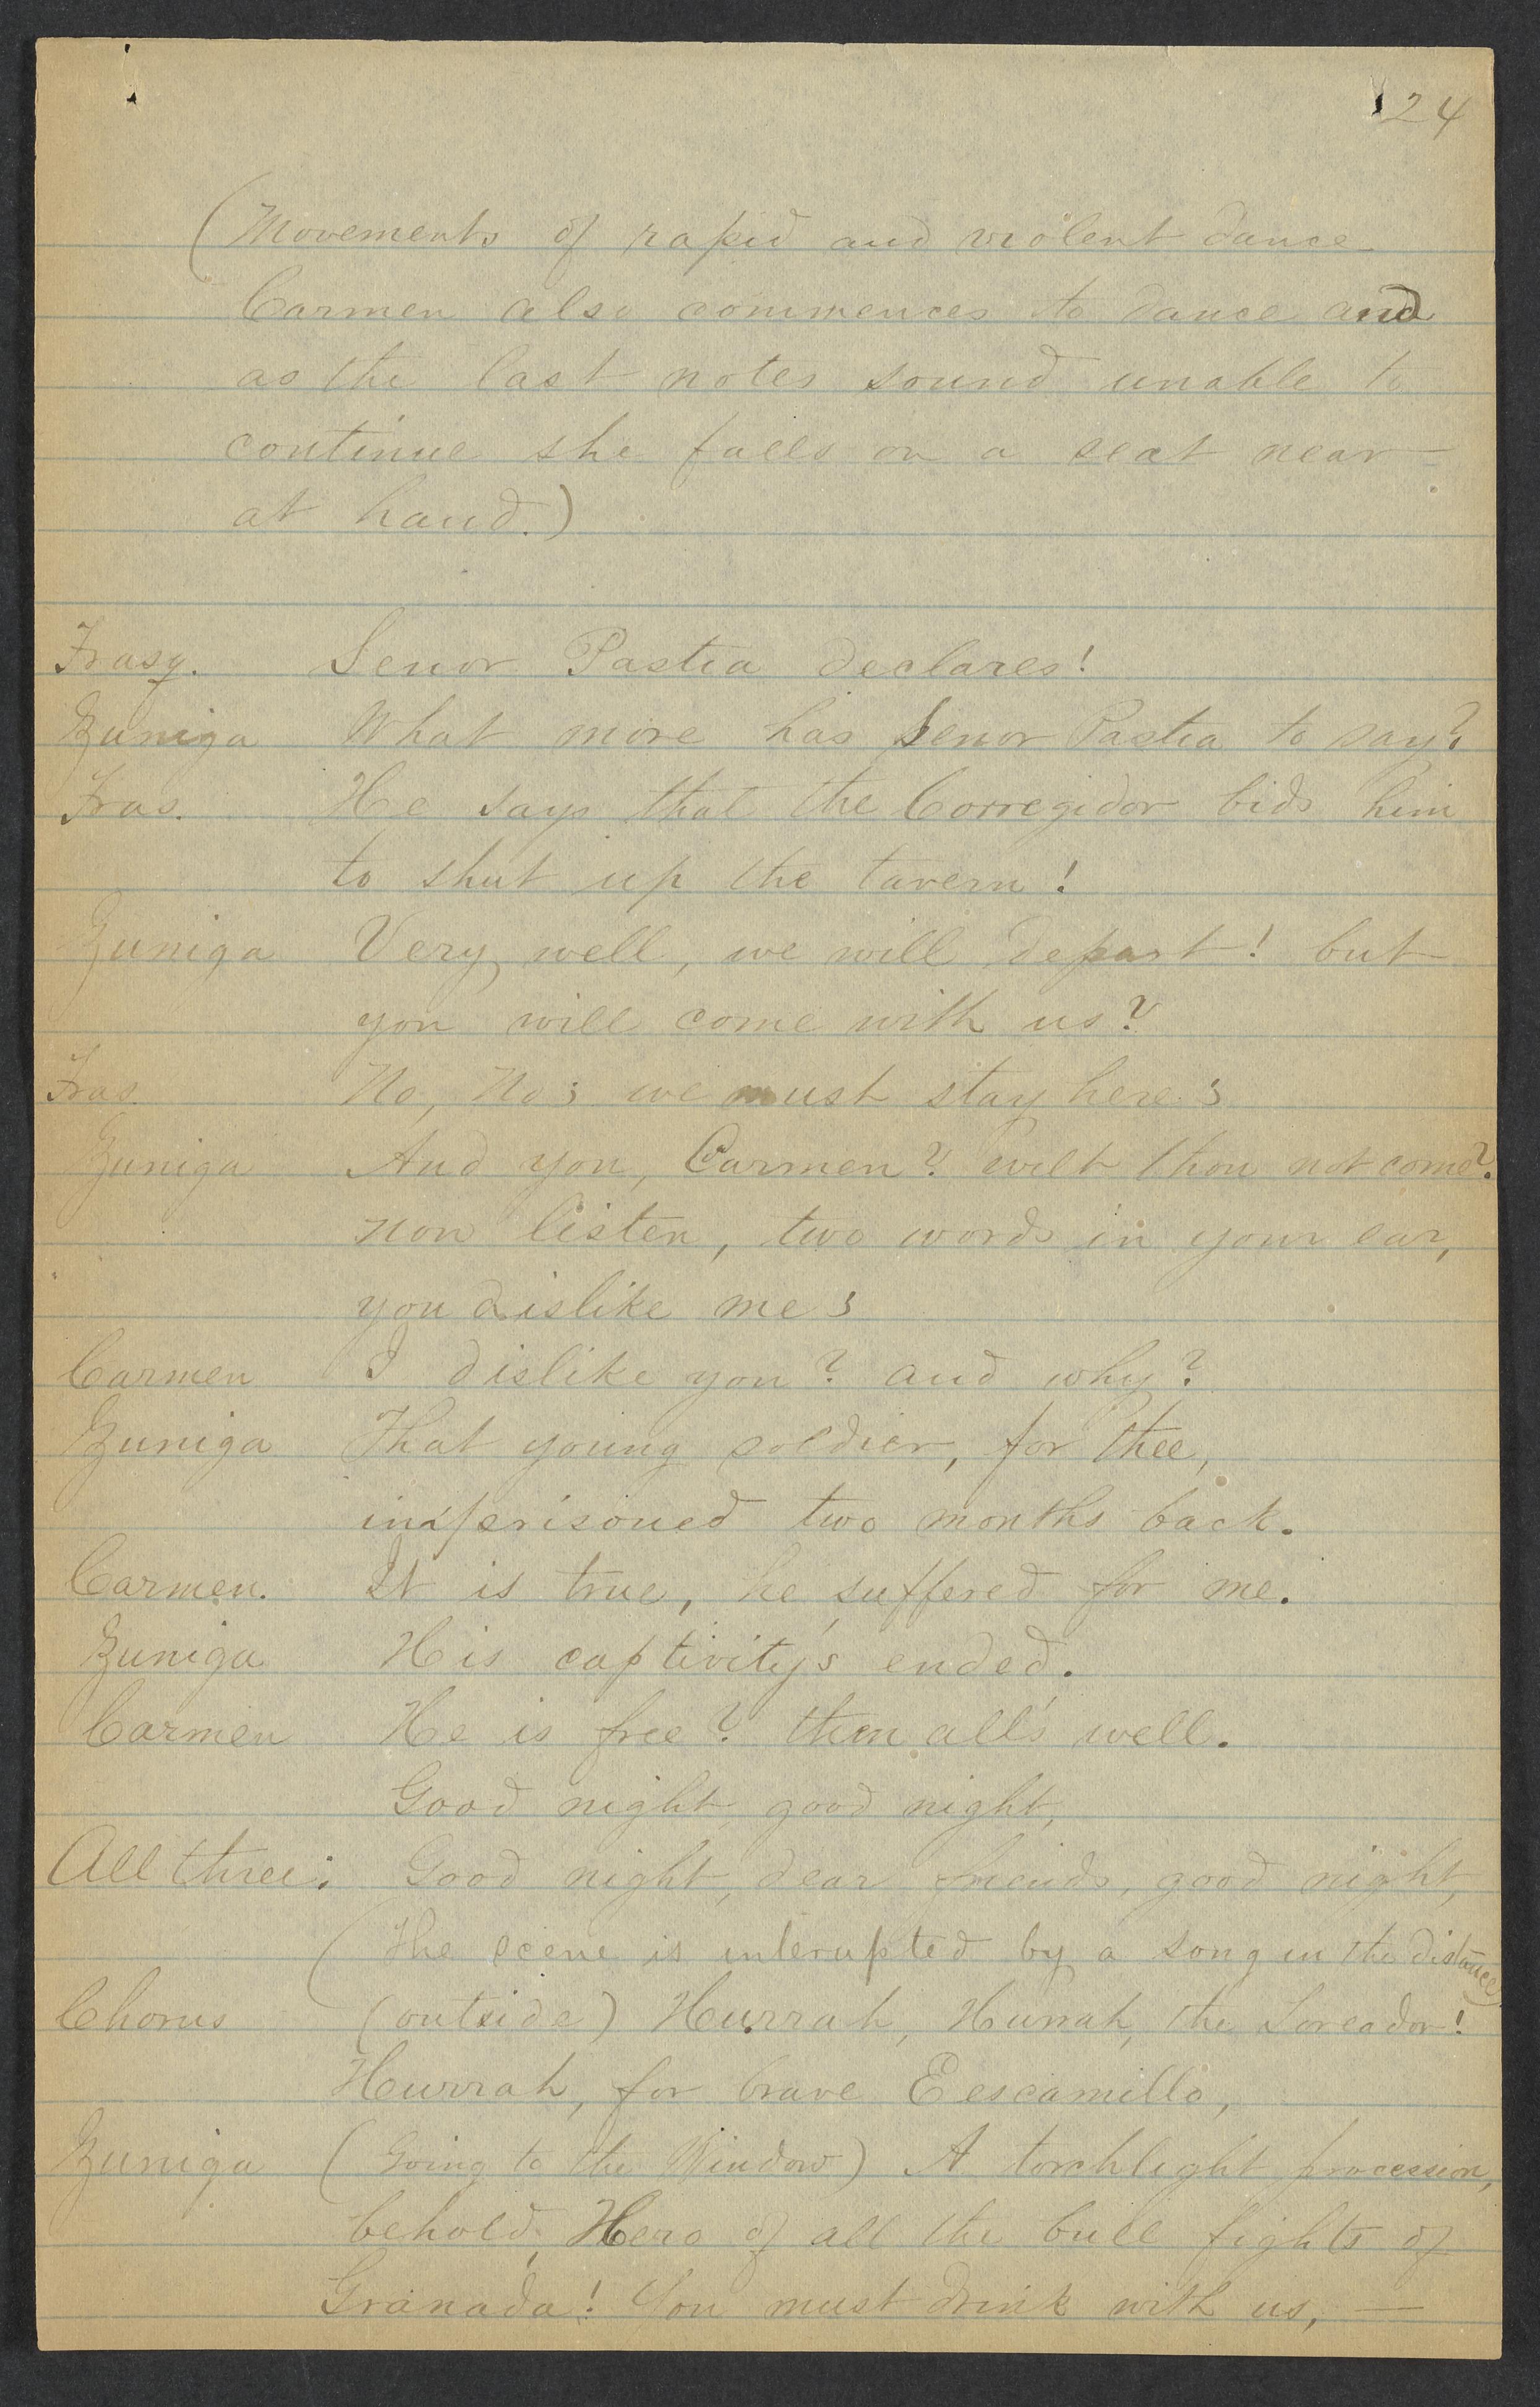 24
(Movements of rapid and violent dance
Carmen also commences to dance and
as the last notes sound unable to
continue she falls on a seat near
at hand.)
Frasq. Senor Pastia declares!
Zuniga What more has Senor Pastia to say?
Fras. He says that the Corregidor bids him
to shut up the tavern!
Zuniga Very well, we will depart! but
you will come with us?
Fras. No, No; we must stay here;
Zuniga And you, Carmen? wilt thou not come?
now listen, two words in your ear,
you dislike me;
Carmen I dislike you? and why?
Zuniga That young soldier, for thee,
imprisoned two months back.
Carmen. It is true, he suffered for me.
Zuniga His captivity's ended.
Carmen He is free? then all's well.
Good night, good night,
All three: Good night, dear friends, good night,
(The scene is interupted by a song in the distance)
Chorus (outside) Hurrah, Hurrah, the Toreador!
Hurrah, for brave Eescamillo,
Zuniga (Going to the Window) A torchlight procession,
behold, Hero of all the bull fights of
Granada! You must drink with us, —